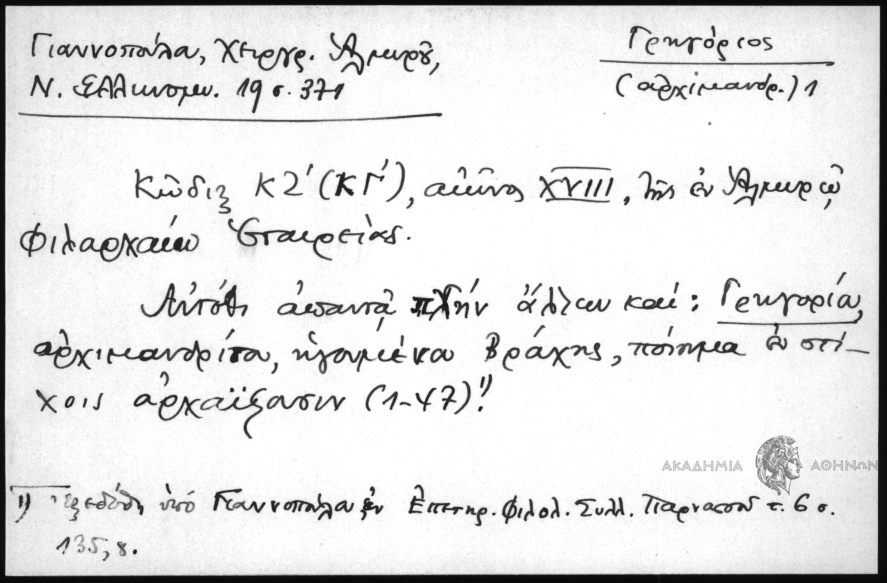 Γιαννοπούλου, Χειργρ. Ἁλμυροῦ,
Ν. Ἑλληνομν. 19 σ. 371
Γρηγόριος
(ἀρχιμανδρ.) 1
Κῶδιξ ΚΖ' (ΚΓ'), αἰῶνος XVIII, τῆς ἐν Ἁλμυρῷ
Φιλαρχαίου Ἑταιρείας.
Αὐτόθι ἀπαντᾷ πλὴν ἄλλων καί: Γρηγορίου,
ἀρχιμανδρίτου, ἡγουμένου Βράχης, ποίημα ἐν στί-
χοις ἀρχαΐζουσιν (1-47)¹⁾.
ΑΚΑΔΗΜΙΑ ΑΘΗΝΩΝ
1) Ἐξεδόθη ὑπό Γιαννοπούλου ἐν Ἐπετηρ. Φιλολ. Συλλ. Παρνασσοῦ τ. 6 σ.
135, 8.